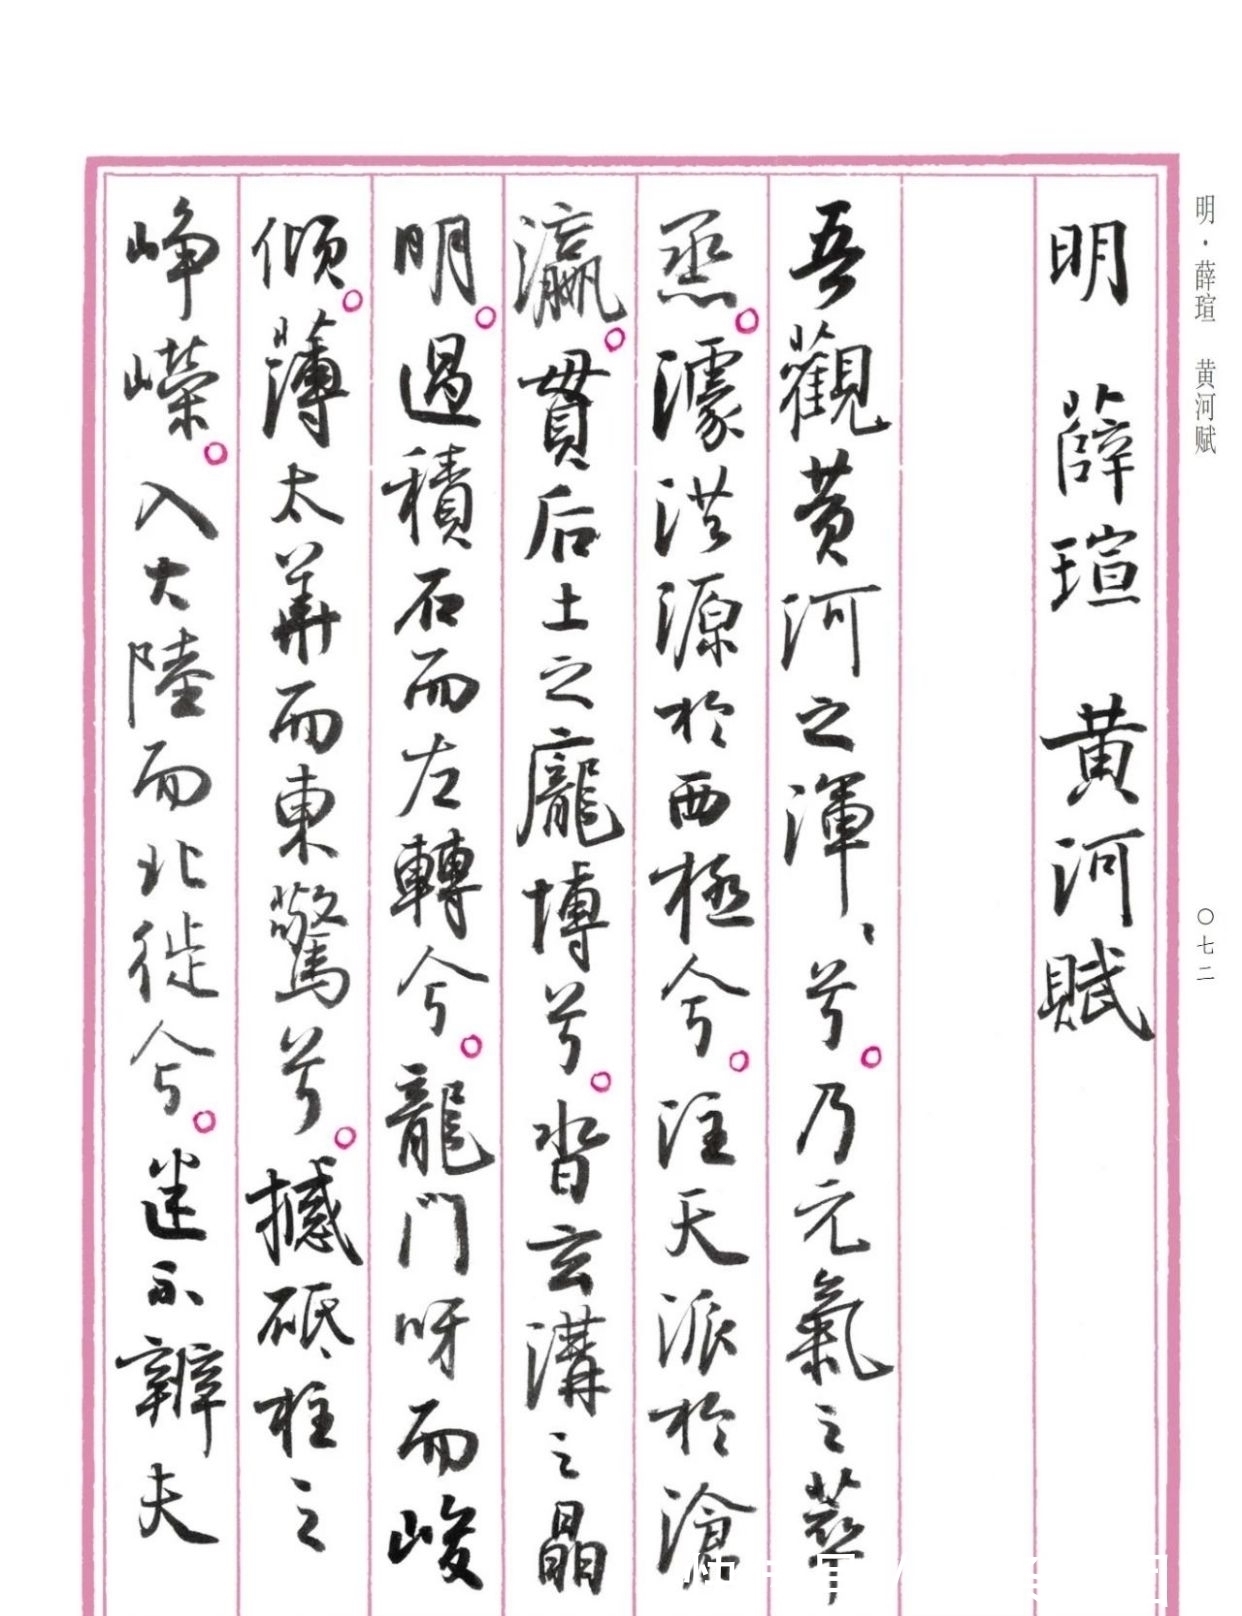 明·薛瑄 黄河赋
〇七二
明 薛瑄 黄河賦
吾觀黄河之渾〻兮。乃元氣之蒸
烝。濬洪源於西極兮。注天派於滄
瀛。貫后土之龐博兮。沓玄溝之晶
明。過積石而左轉兮。龍門呀而峻
傾。薄太華而東驚兮。撼砥柱之
崢嶸。入大陸而北徙兮。迷不辨夫